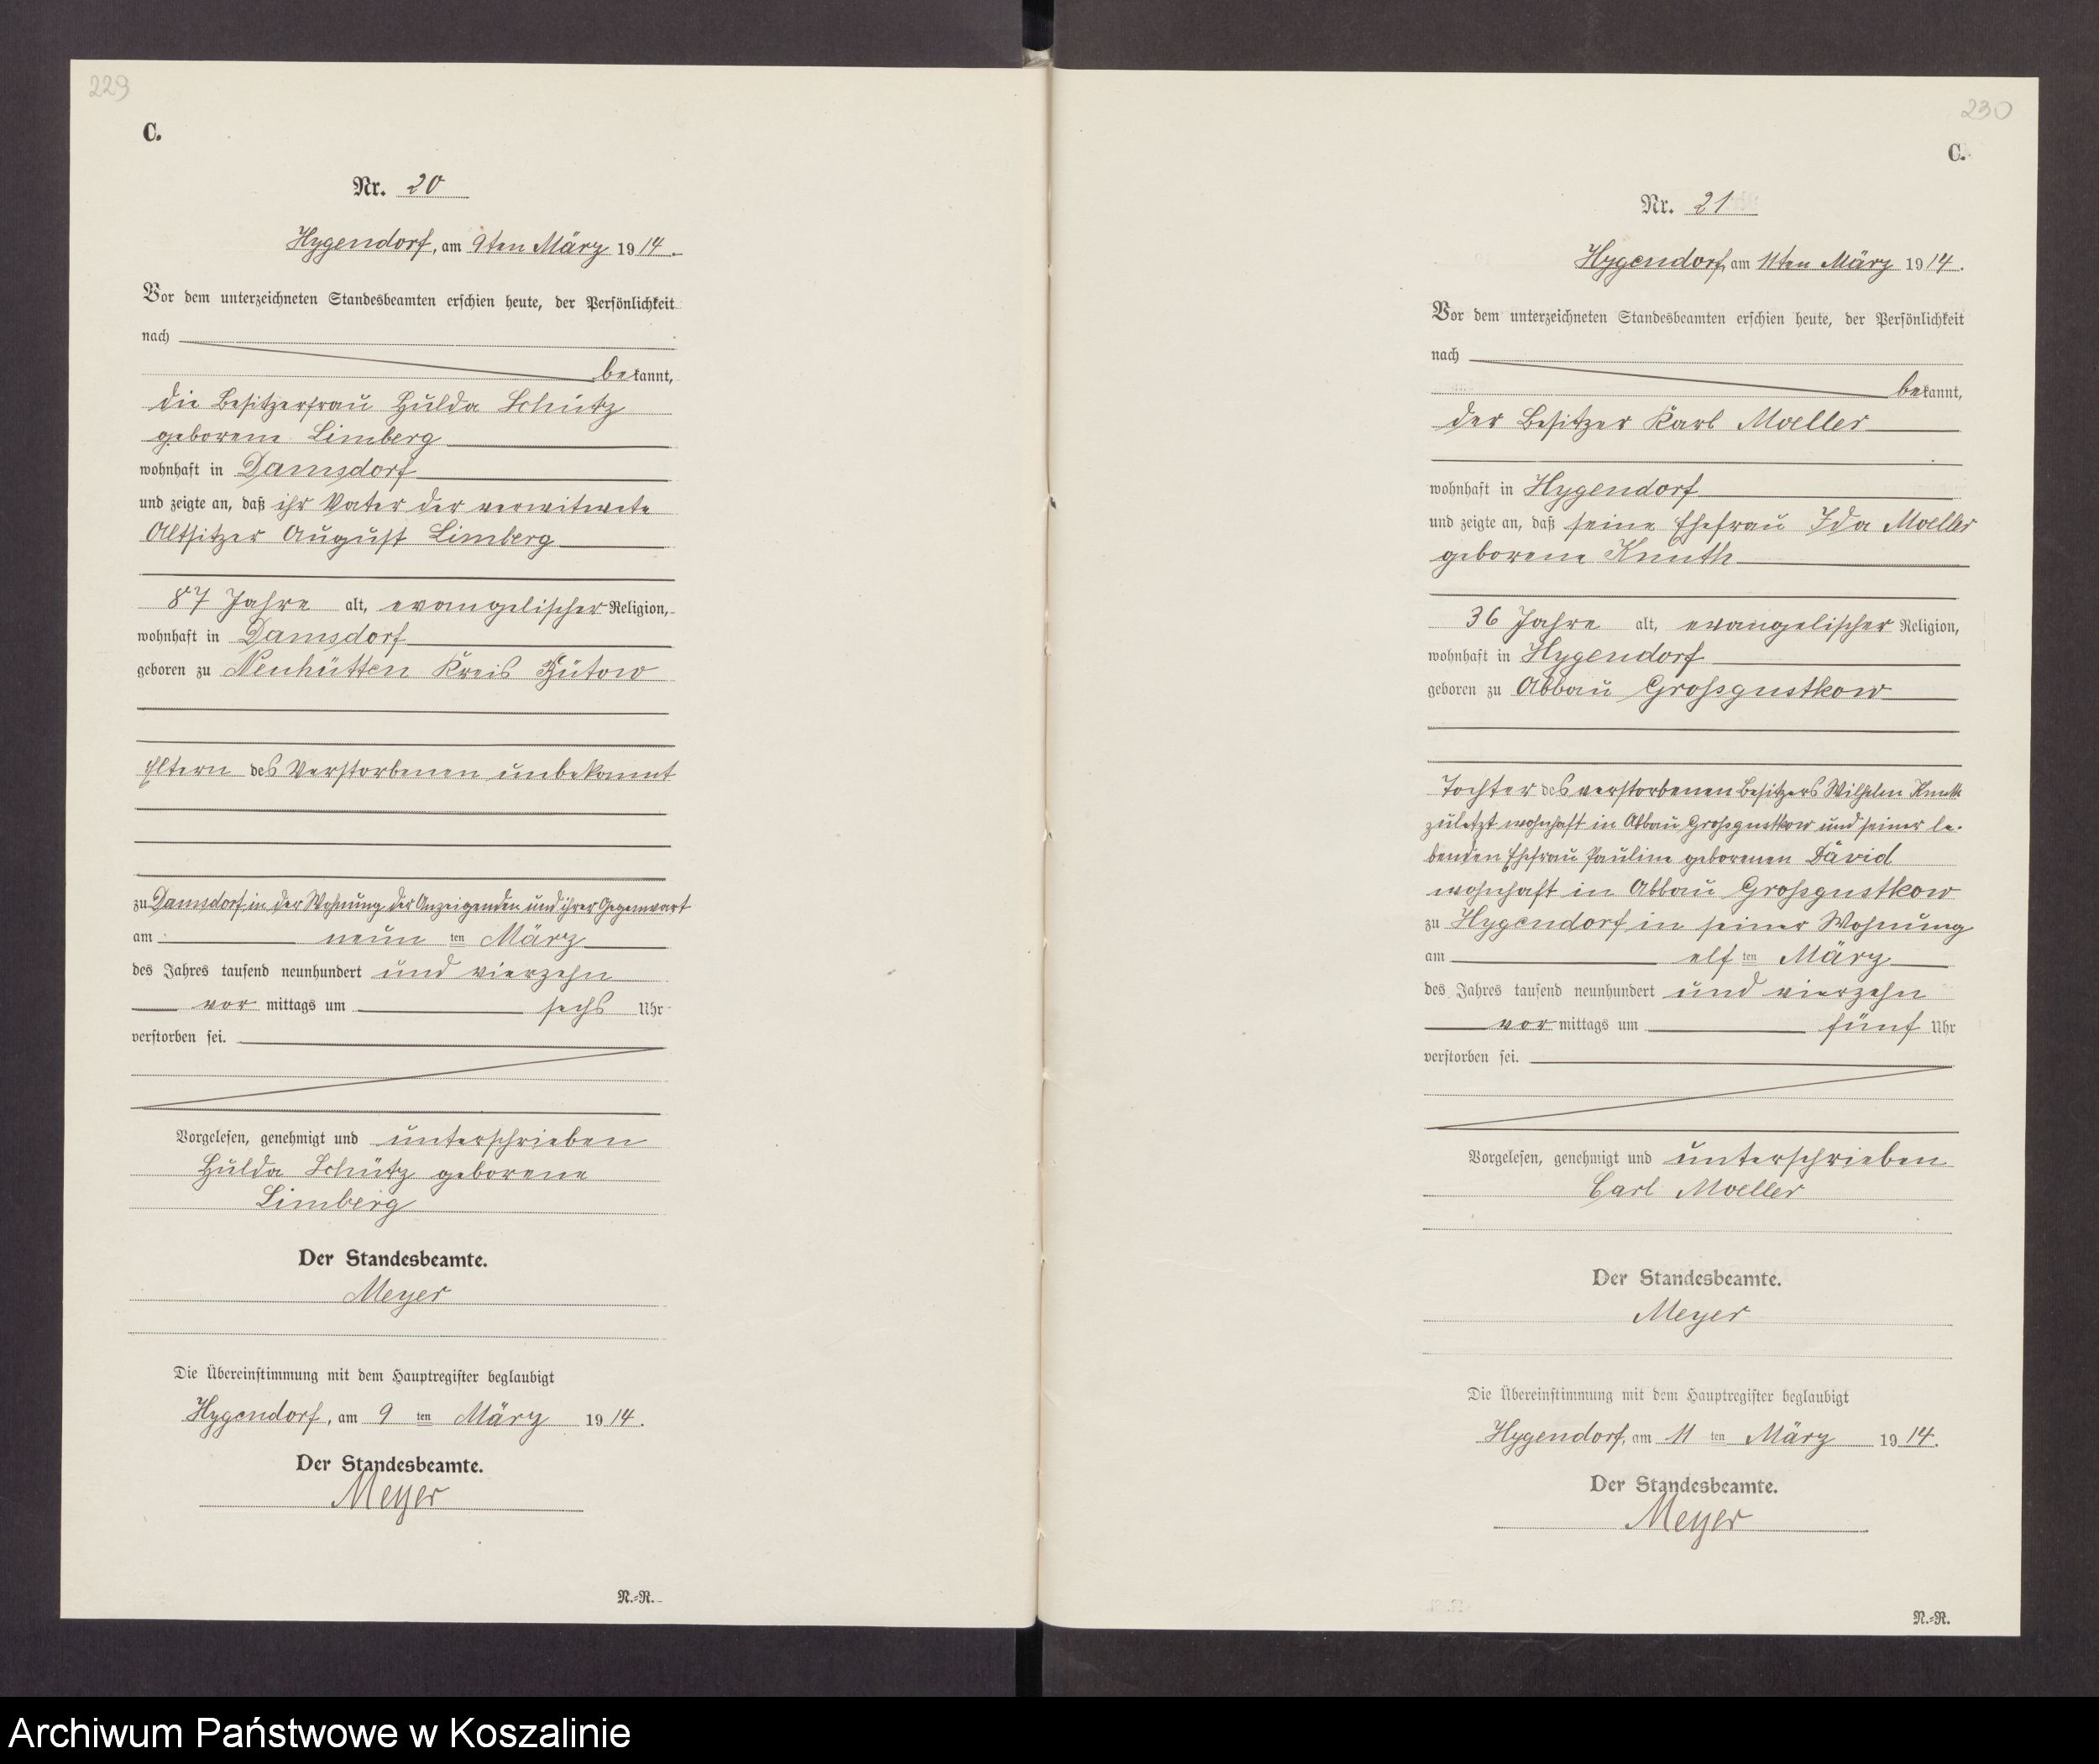 229
C.
Nr. 20
Hygendorf, am 9ten März 1914.
Vor dem unterzeichneten Standesbeamten erschien heute, der Persönlichkeit
nach
bekannt,
die Besitzerfrau Hulda Schütz
geborene Limberg
wohnhaft in Damsdorf
und zeigte an, daß ihr Vater der verwitwete
Altsitzer August Limberg
87 Jahre alt, evangelischer Religion,
wohnhaft in Damsdorf
geboren zu Neuhütten Kreis Bütow
Eltern des Verstorbenen unbekannt
zu Damsdorf in der Wohnung der Anzeigenden und ihrer Gegenwart
am neun ten März
des Jahres tausend neunhundert und vierzehn
vor mittags um sechs Uhr
verstorben sei.
Vorgelesen, genehmigt und unterschrieben
Hulda Schütz geborene
Limberg
Der Standesbeamte.
Meyer
Die Übereinstimmung mit dem Hauptregister beglaubigt
Hygendorf, am 9 ten März 1914.
Der Standesbeamte.
Meyer
N.=R.
230
C.
Nr. 21
Hygendorf, am 11ten März 1914.
Vor dem unterzeichneten Standesbeamten erschien heute, der Persönlichkeit
nach
bekannt,
der Besitzer Karl Moeller
wohnhaft in Hygendorf
und zeigte an, daß seine Ehefrau Ida Moeller
geborene Knuth
36 Jahre alt, evangelischer Religion,
wohnhaft in Hygendorf
geboren zu Abbau Großgustkow
Tochter des verstorbenen Besitzers Wilhelm Knuth
zuletzt wohnhaft in Abbau Großgustkow und seiner le-
benden Ehefrau Pauline geborenen David
wohnhaft in Abbau Großgustkow
zu Hygendorf in seiner Wohnung
am elf ten März
des Jahres tausend neunhundert und vierzehn
vor mittags um fünf Uhr
verstorben sei.
Vorgelesen, genehmigt und unterschrieben
Carl Moeller
Der Standesbeamte.
Meyer
Die Übereinstimmung mit dem Hauptregister beglaubigt
Hygendorf, am 11 ten März 1914.
Der Standesbeamte.
Meyer
N.=R.
Archiwum Państwowe w Koszalinie